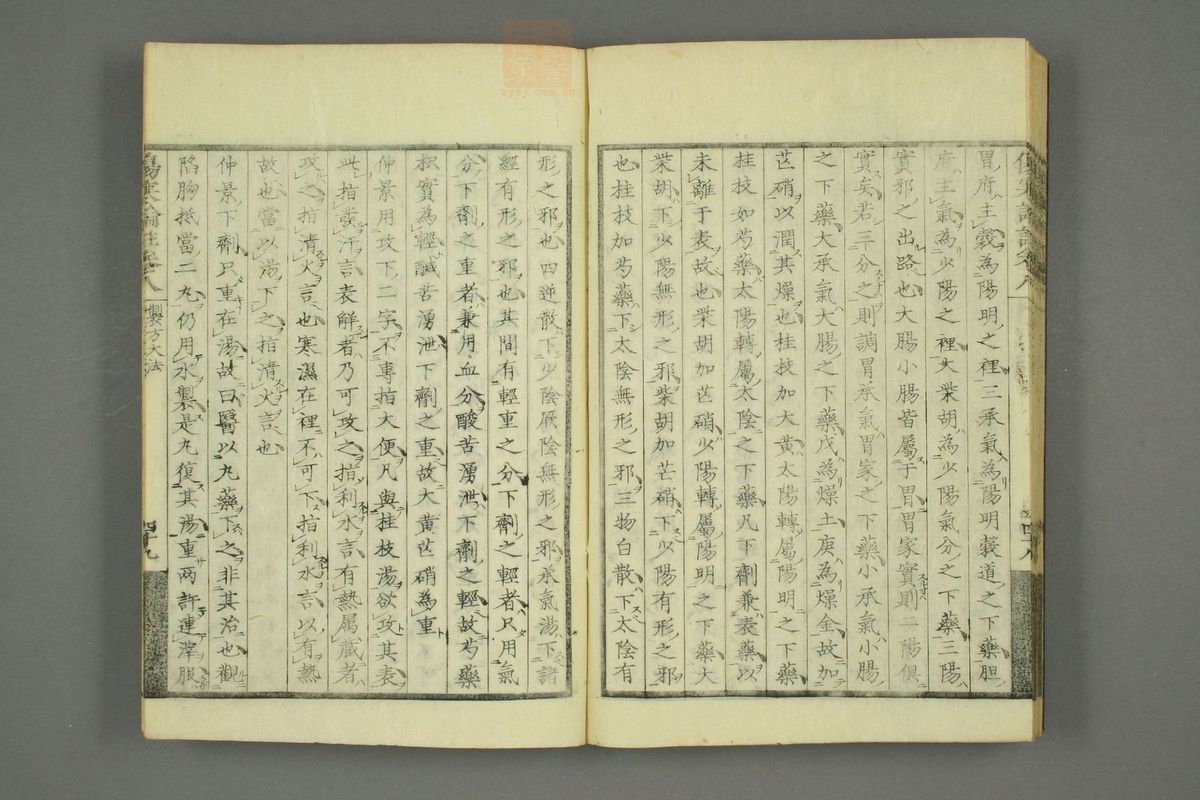 胃府主穀為陽明之裡三承氣為陽明穀道之下藥胆
府主氣為少陽之裡大柴胡為少陽氣分之下藥三陽
實邪之出路也大腸小腸皆屬于胃胃家實則二陽俱
實矣若三分之則調胃承氣胃家之下藥小承氣小腸
之下藥大承氣大腸之下藥戊為燥土庚為燥金故加
芒硝以潤其燥也桂枝加大黄太陽轉屬陽明之下藥
桂枝加芍藥太陽轉屬太陰之下藥凡下劑兼表藥以
未離于表故也柴胡加芒硝少陽轉屬陽明之下藥大
柴胡下少陽無形之邪柴胡加芒硝下少陽有形之邪
也桂枝加芍藥下太陰無形之邪三物白散下太陰有
形之邪也四逆散下少陰厥陰無形之邪承氣湯下諸
經有形之邪也其間有輕重之分下劑之輕者只用氣
分下劑之重者兼用血分酸苦湧泄下劑之輕故芍藥
枳實為輕鹹苦湧泄下劑之重故大黄芒硝為重
仲景用攻下二字不專指大便凡與桂枝湯欲攻其表
此指發汗言表解者乃可攻之指利水言有熱屬藏者
攻之指清火言也寒濕在裡不可下指利水言以有熱
故也當以湯下之指清火言也
仲景下劑只重在湯故曰醫以丸藥下之非其治也觀
陷胸抵當二丸仍用水製是丸復其湯重兩許連滓服
傷寒論註卷八
製方大法
四十九
四十八
zysj.com.cn